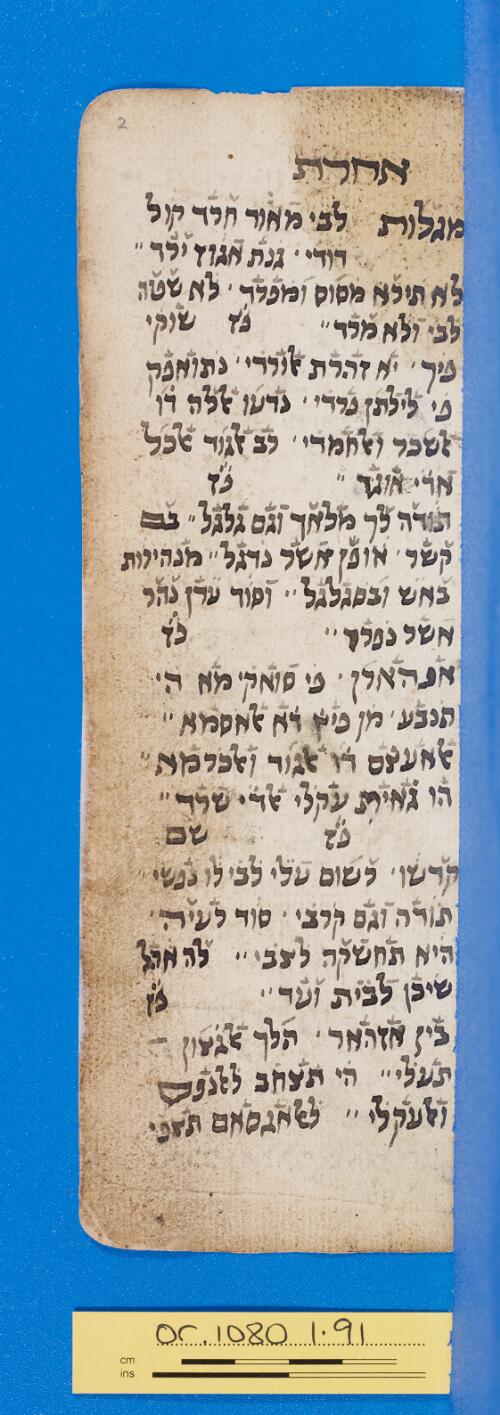 2
אחרת
מגלות לבי מאוד חרד קול
דודי · גנת אגוז ירד "
לא תירא מסוס ומפרד · לא שטה
לבי ולא מרד " כ'ץ שוקי
פיך · יא זהרת אלורד · נתואפק
פי לילתן ברדי · נדעו אללה דו
אשכר ואלחמדי · לב אלגוד אלכל
ארי אוגד " כ'ץ
תורה לך מלאך וגם גלגל " בם
קשר · אופן אשר נרגל " מנהירות
באש ובסגלגל " וסוד עדן נהר
אשר נפרד " כ'ץ
אנהארן · פי סואקי מא הי
תנבע · מן פיץ דא אלאסמא "
אלאעצם דו אלגוד ואלכרמא "
הו גאית עקלי אלדי שרד "
כ'ץ שם
קדשו · לשום עלי לבי לו נפשי "
תורה וגם קרבי · סוד לעיר"ה ·
היא תחשקה לצבי " לה אהל
שיכן לבית ועד " כ'ץ
בין אזהאר · תלך אלגצון
תעלי " הי תצחב ללנפס
ולעקלי " ללאגסאם תצבי
or.1080 1.91
cm
ins